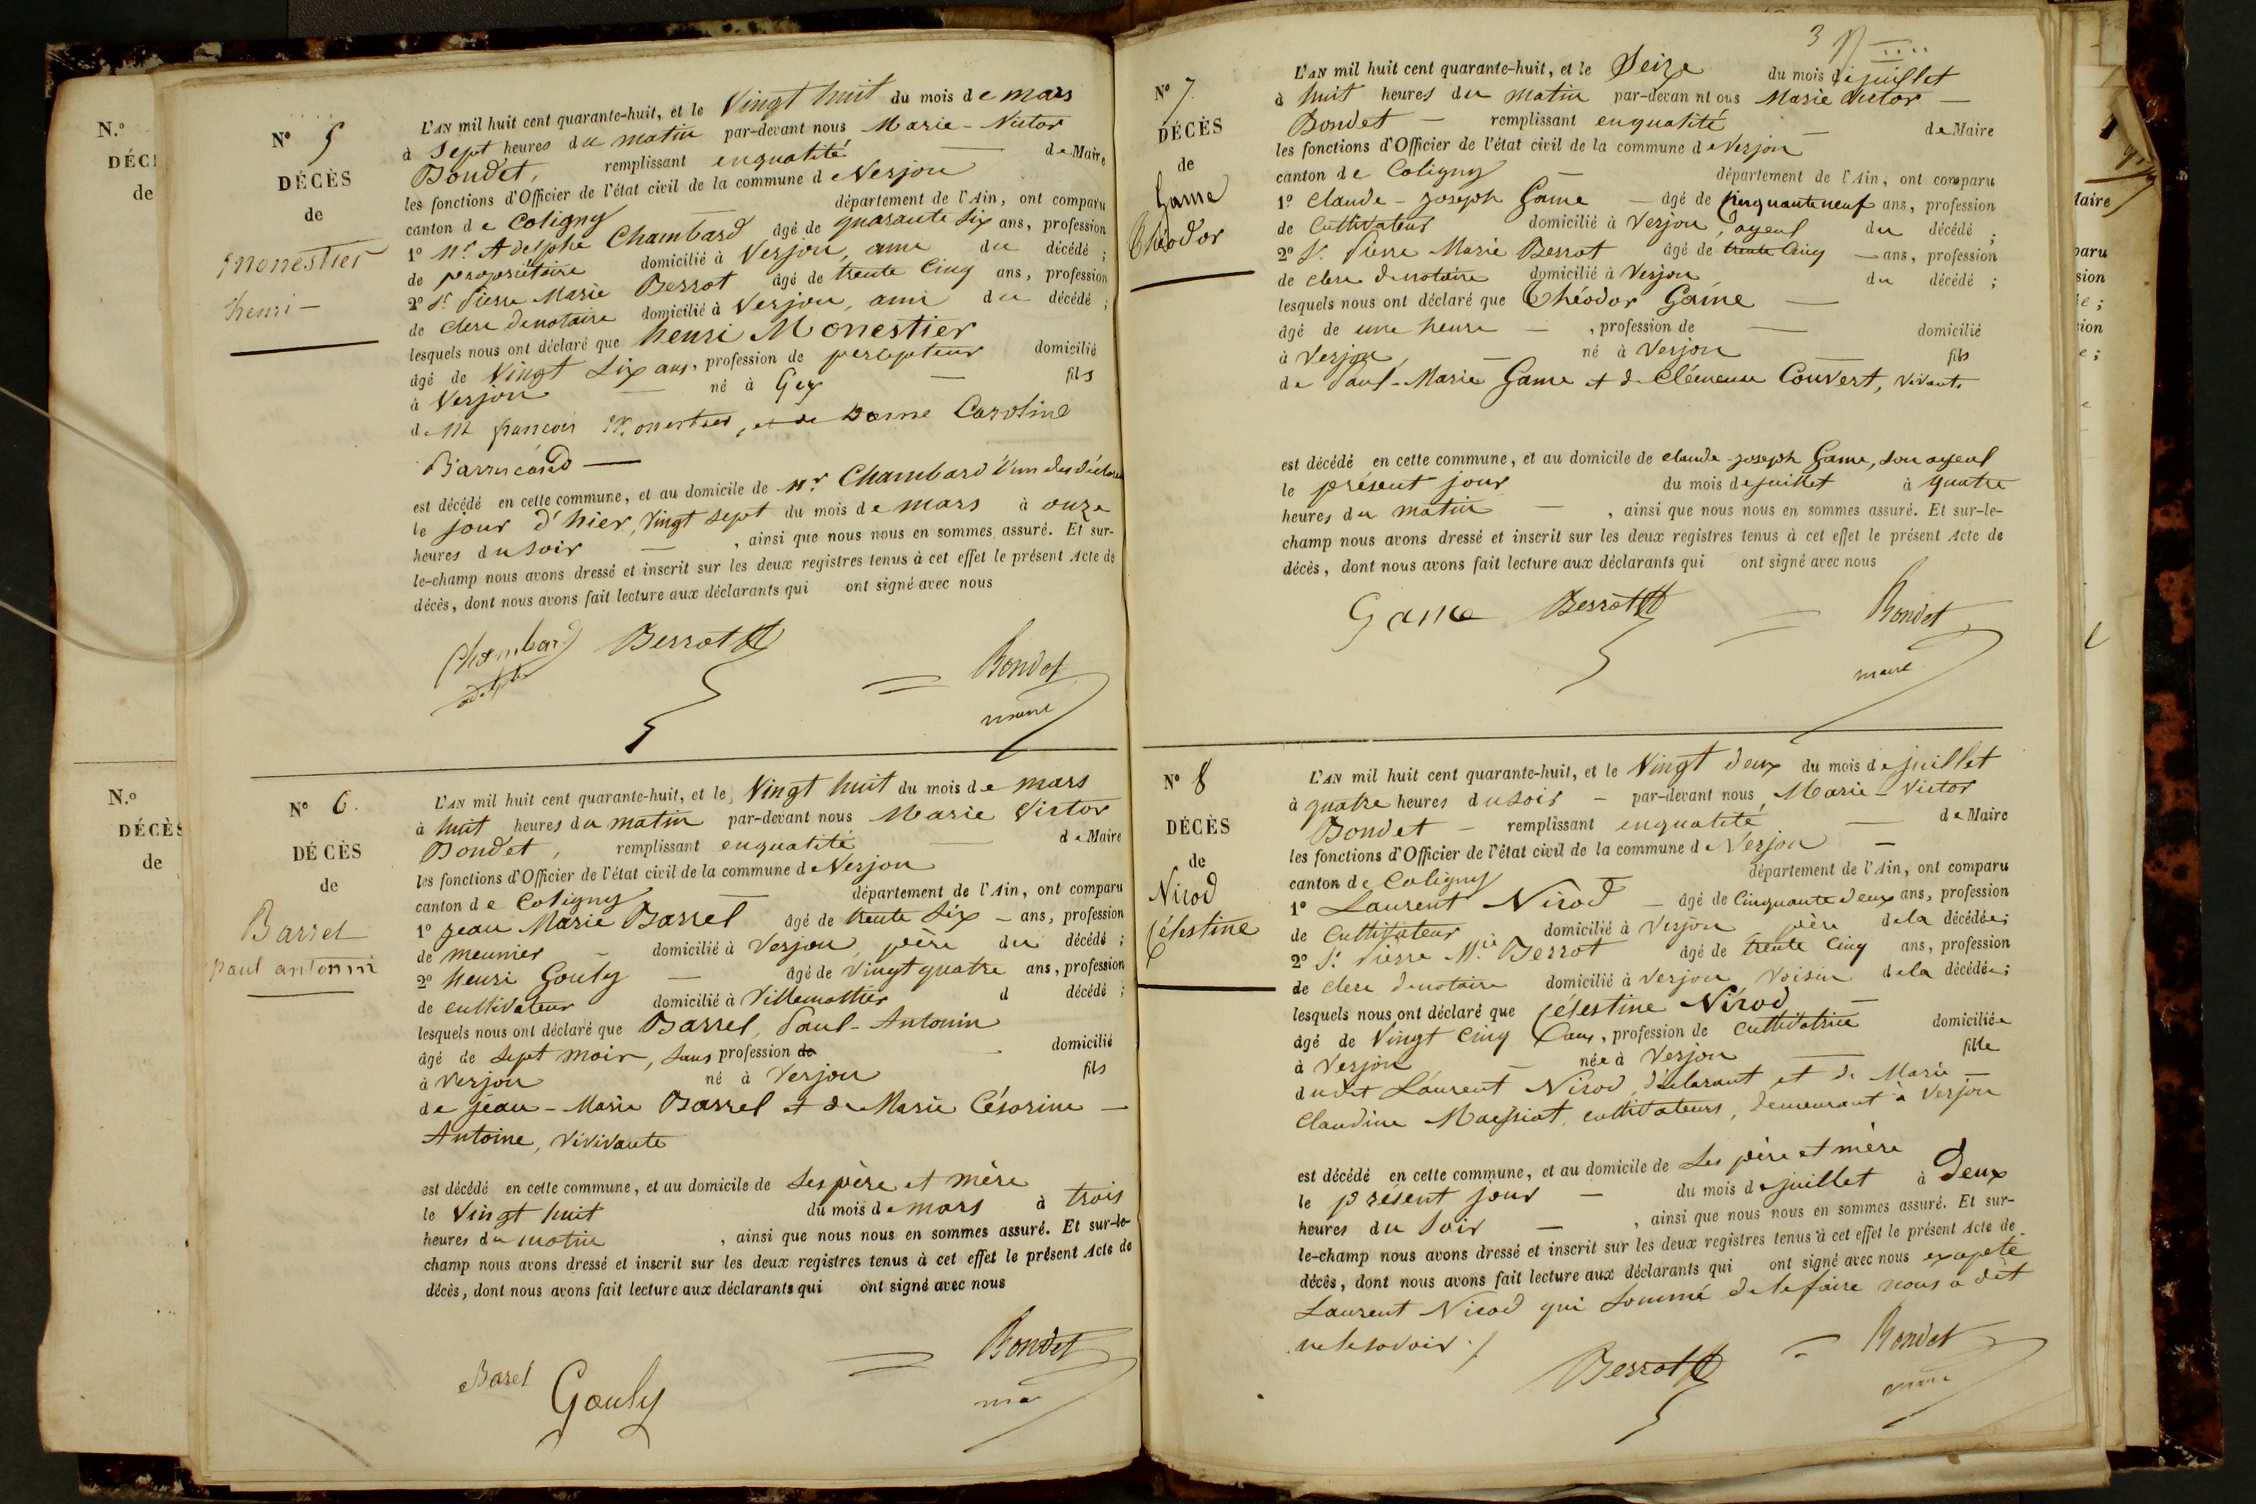 N.º
DÉCÈ
de
N.º
DÉCÈS
de
Nº 5
DÉCÈS
de
Monestier
henri
L'AN mil huit cent quarante-huit, et le Vingt huit du mois de mars
à Sept heures du matin par-devant nous Marie-Victor
Bondet, remplissant enqualité de Maire
les fonctions d'Officier de l'état civil de la commune de Verjon
canton de Coligny département de l'Ain, ont comparu
1º Mr. Adolphe Chambard âgé de quarante Six ans, profession
de propriétaire domicilié à Verjon, ami du décédé ;
2º Sr. Pierre Marie Berrot âgé de trente Cinq ans, profession
de clerc denotaire domicilié à Verjon, ami du décédé ;
lesquels nous ont déclaré que henri Monestier
âgé de Vingt Six ans, profession de percepteur domicilié
à Verjon né à Gex fils
de Mr françois Monestier, et de Dame Caroline
est décédé en cette commune, et au domicile de Mr Chambard l'un des déclarants
le jour d'hier, Vingt Sept du mois de mars à onze
heures du Soir , ainsi que nous nous en sommes assuré. Et sur-
le-champ nous avons dressé et inscrit sur les deux registres tenus à cet effet le présent Acte de
décès, dont nous avons fait lecture aux déclarants qui ont signé avec nous
Chambard Berrot Bondet
maire
Nº 6.
DÉCÈS
de
Barrel
paul antonin
L'AN mil huit cent quarante-huit, et le Vingt huit du mois de mars
à huit heures du matin par-devant nous Marie Victor
Bondet, remplissant enqualité de Maire
les fonctions d'Officier de l'état civil de la commune de Verjon
canton de Coligny département de l'Ain, ont comparu
1º Jean Marie Barrel âgé de trente Six ans, profession
de meunier domicilié à Verjon, père du décédé ;
2º henri Gouly âgé de Vingt quatre ans, profession
de cultivateur domicilié à Villemottier d décédé ;
lesquels nous ont déclaré que Barrel, Paul-Antonin
âgé de Sept mois, Sans profession de domicilié
à Verjon né à Verjon fils
de Jean-Marie Barrel et de Marie Césarine
Antoine, Vivivante
est décédé en cette commune, et au domicile de Ses père et mère
le Vingt huit du mois de mars à trois
heures du matin , ainsi que nous nous en sommes assuré. Et sur-le-
champ nous avons dressé et inscrit sur les deux registres tenus à cet effet le présent Acte de
décès, dont nous avons fait lecture aux déclarants qui ont signé avec nous
Barel Gouly Bondet
3
Nº 7.
DÉCÈS
de
Game
Théodor
L'AN mil huit cent quarante-huit, et le Seize du mois de juillet
à huit heures du matin par-devan nt ous Marie Victor
Bondet remplissant enqualité de Maire
les fonctions d'Officier de l'état civil de la commune de Verjon
canton de Coligny département de l'Ain, ont comparu
1º Claude-Joseph Game âgé de Cinquante neuf ans, profession
de Cultivateur domicilié à Verjon, ayeul du décédé ;
2º Sr. Pierre Marie Berrot âgé de trente Cinq ans, profession
de clerc denotaire domicilié à Verjon du décédé ;
lesquels nous ont déclaré que Théodor Game
âgé de une heure , profession de domicilié
à Verjon né à Verjon fils
de Paul-Marie Game et de Clémence Couvert, Vivants
est décédé en cette commune, et au domicile de Claude-Joseph Game, Son ayeul
le présent jour du mois de juillet à quatre
heures du matin , ainsi que nous nous en sommes assuré. Et sur-le-
champ nous avons dressé et inscrit sur les deux registres tenus à cet effet le présent Acte de
décès, dont nous avons fait lecture aux déclarants qui ont signé avec nous
Game Berrot Bondet
maire
Nº 8
DÉCÈS
de
Nirod
Célestine
L'AN mil huit cent quarante-huit, et le Vingt deux du mois de juillet
à quatre heures du Soir par-devant nous, Marie-Victor
Bondet remplissant enqualité de Maire
les fonctions d'Officier de l'état civil de la commune de Verjon
canton de Coligny département de l'Ain, ont comparu
1º Laurent Nirod âgé de Cinquante deux ans, profession
de Cultivateur domicilié à Verjon père dela décédée ;
2º Sr. Pierre Mie. Berrot âgé de trente Cinq ans, profession
de clerc denotaire domicilié à Verjon Voisin dela décédée ;
lesquels nous ont déclaré que Célestine Nirod
âgé de Vingt Cinq ans, profession de Cultivatrice domiciliée
à Verjon née à Verjon fille
dudit Laurent Nirod, déclarant et de Marie
Claudine cultivateurs, demeurant à Verjon
est décédé en cette commune, et au domicile de Ses père et mère
le présent jour du mois de juillet à Deux
heures du Soir , ainsi que nous nous en sommes assuré. Et sur-
le-champ nous avons dressé et inscrit sur les deux registres tenus à cet effet le présent Acte de
décès, dont nous avons fait lecture aux déclarants qui ont signé avec nous excepté
Laurent Nirod qui Sommé de le faire nous a dit
ne le Savoir ./.
Berrot Bondet
maire
Maire
paru
sion
é ;
sion
e ;